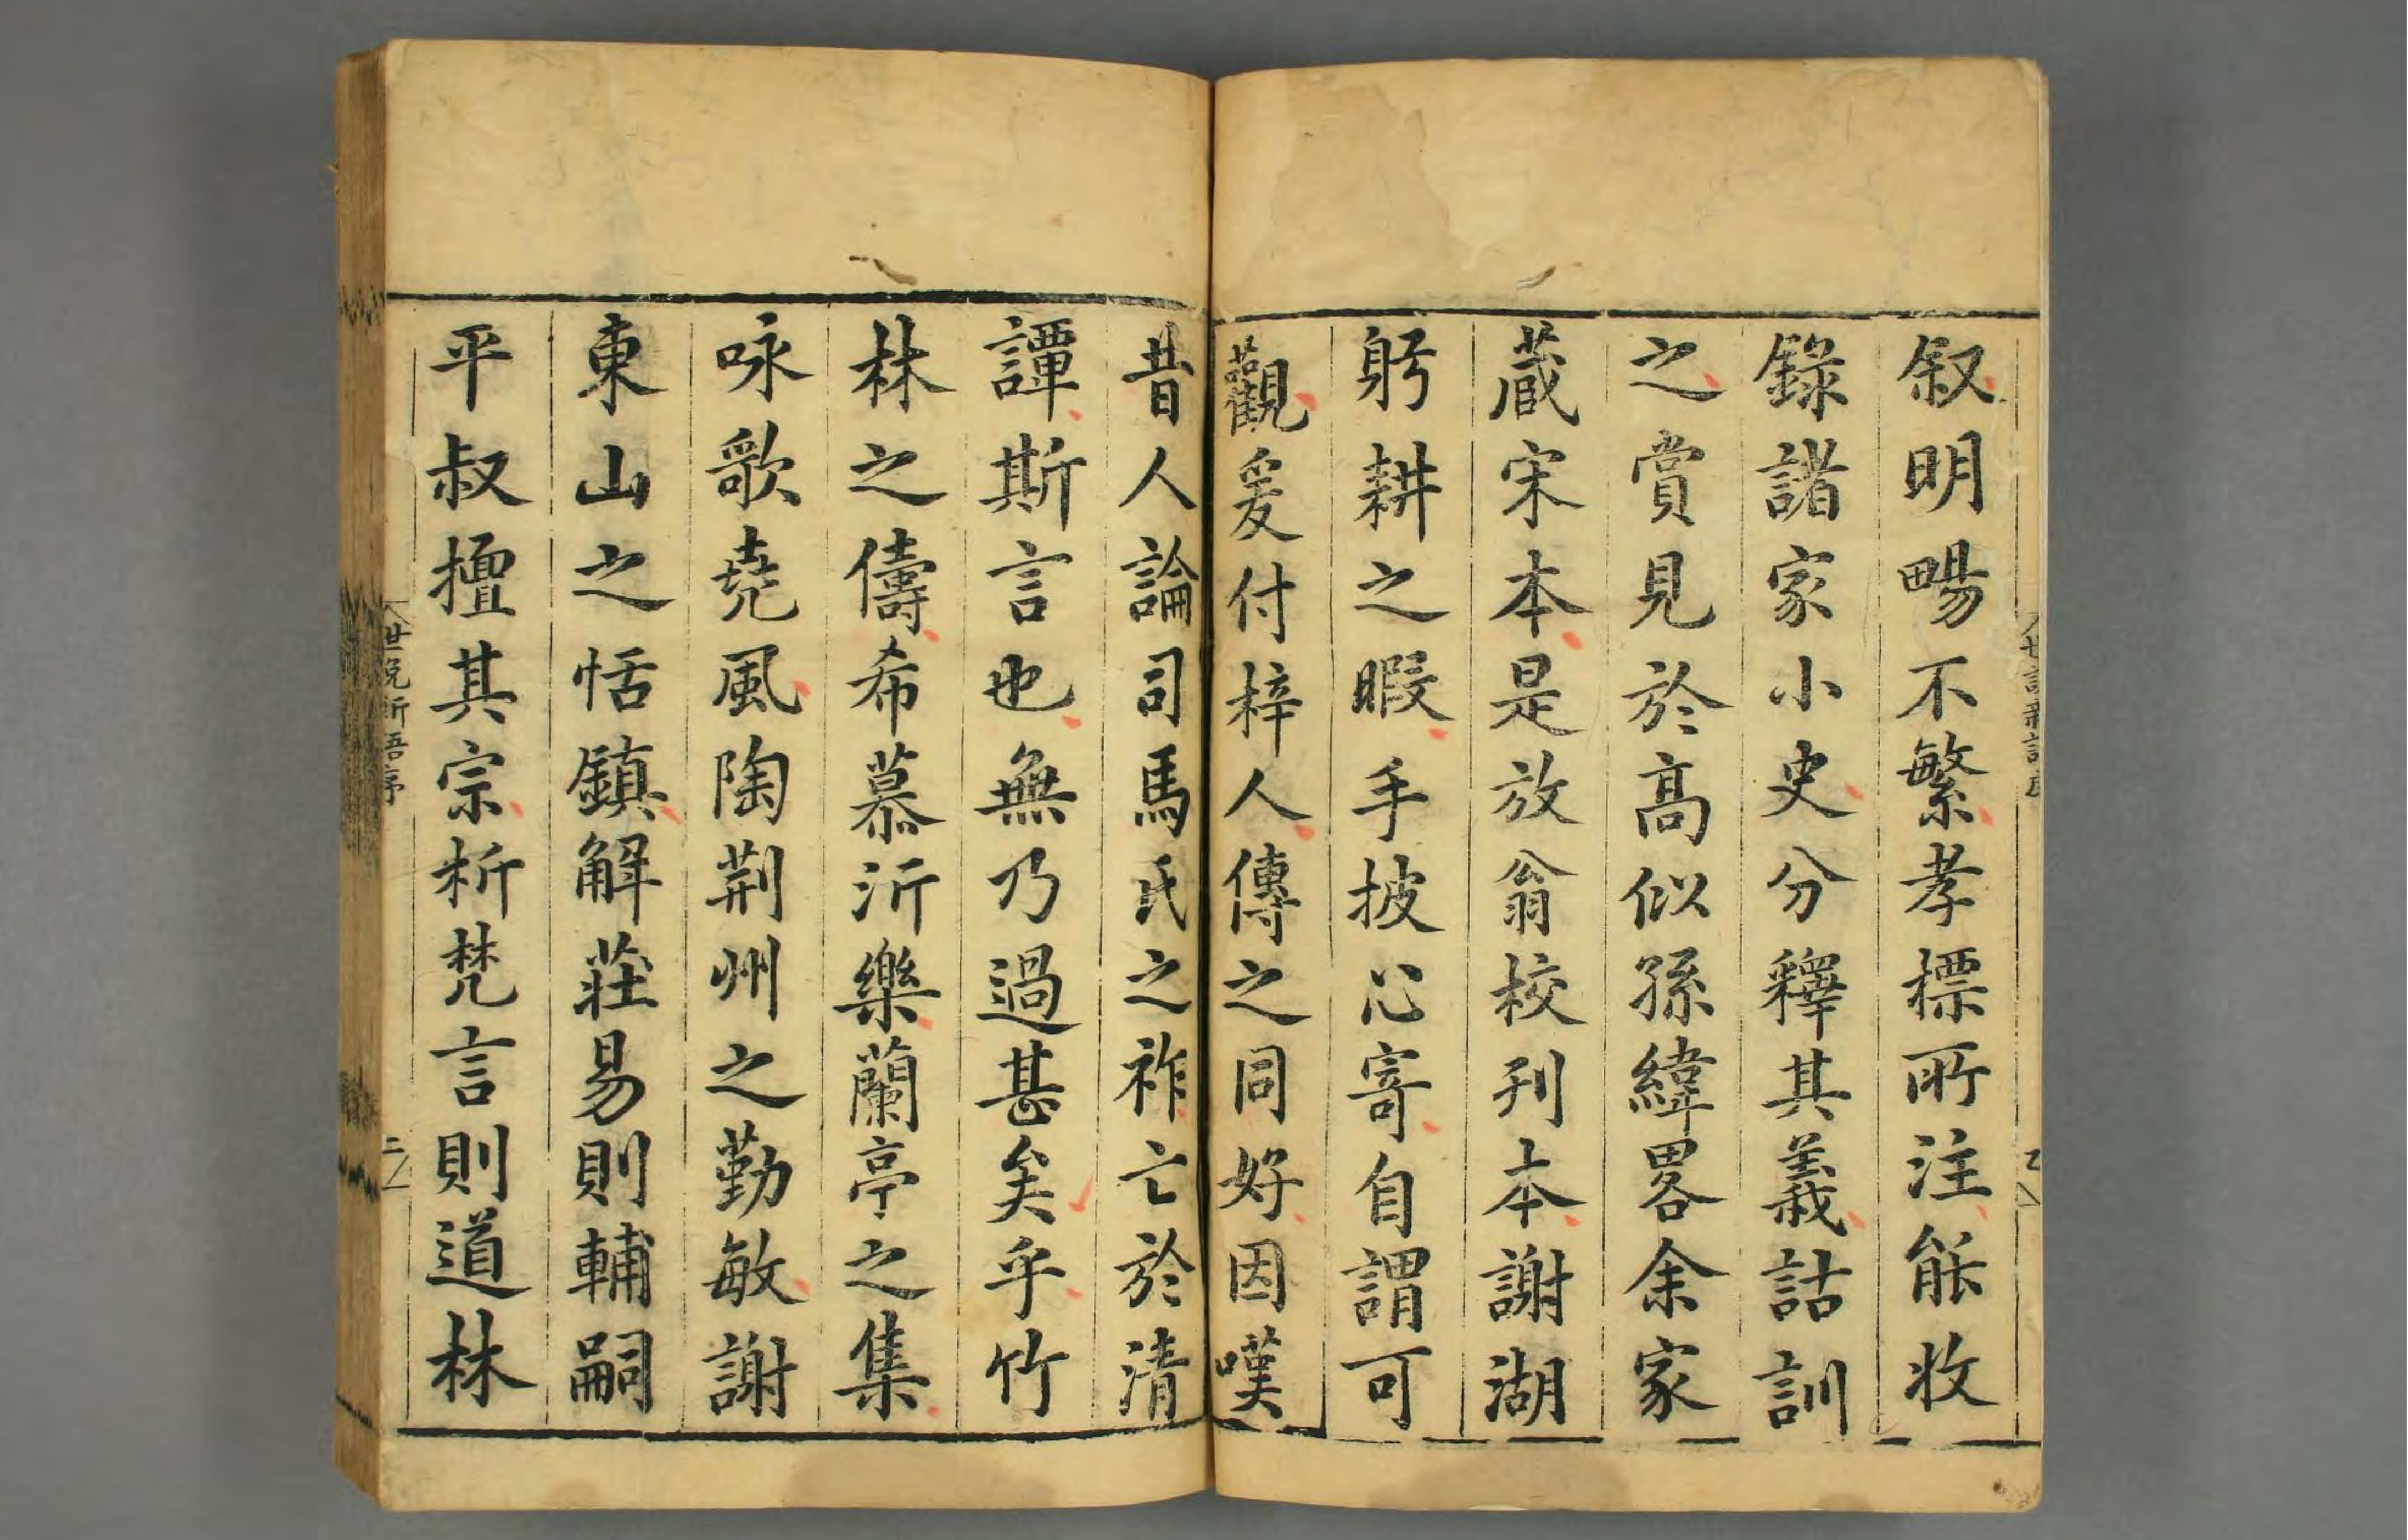 叙明畼不繁孝標所注能收
錄諸家小史分釋其義詁訓
之賞見於高似孫緯畧余家
蔵宋本是放翁校刋本謝湖
躬耕之暇手披心寄自謂可
觀爰付梓人傳之同好因嘆
昔人論司馬氏之祚亡於清
譚斯言也無乃過甚矣乎竹
林之儔希慕沂樂蘭亭之集
咏歌堯風陶荆州之勤敏謝
東山之恬鎮解莊易則輔嗣
平叔擅其宗析梵言則道林
世說新語序
二